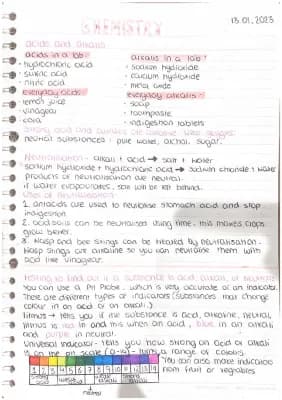 13.01.2023
CHEMISTRY
acids and alkalis
acids in a lab:
alkalis in a lab:
• hydrochloric acid
• sodium hydroxide
• sulfuric acid
• calcium hydroxide
• nitric acid
• metal oxide
everyday acids:
everyday alkalis:
• lemon juice
• soap
• vinegar
• toothpaste
• cola
• indigestion tablets
Strong acid and
neutral substances: pure water, alchol, sugar.
Neutralisation - alkali + acid → salt + water
• sodium hydroxide + hydrochloric acid → sodium chloride + water
products of neutralisation are neutral.
if water evapourates, salt will be left behind.
Uses of neutralisation:
1. antacids are used to neutralise stomach acid and stop
indigestion
2. acid soils can be neutralised using lime, this makes crops
grow better.
3. Wasp and bee stings can be treated by neutralisation.
Wasp stings are alkaline so you can neutralise them with
acid like vinegar.
testing to find out if a substance is acid, alkali, or neutral
You can use a PH Probe, which is very accurate or an indicator.
There are different types of indicators (substances that change
colour in an acid or an alkali)
litmus → tells you if the substance is acid, alkaline, neutral
litmus is red in acid, blue in alkali
and purple in neutral.
Universal indicator - tells you how strong an acid or alkali
is on the pH scale (0-14) - turns a range of colours
You can also make indicators
from fruit or vegetables
1 2 3 4 5 6 7 8 9 10 11 12 13 14
strong acid
weak acid
weak alkali
strong alkali
neutral